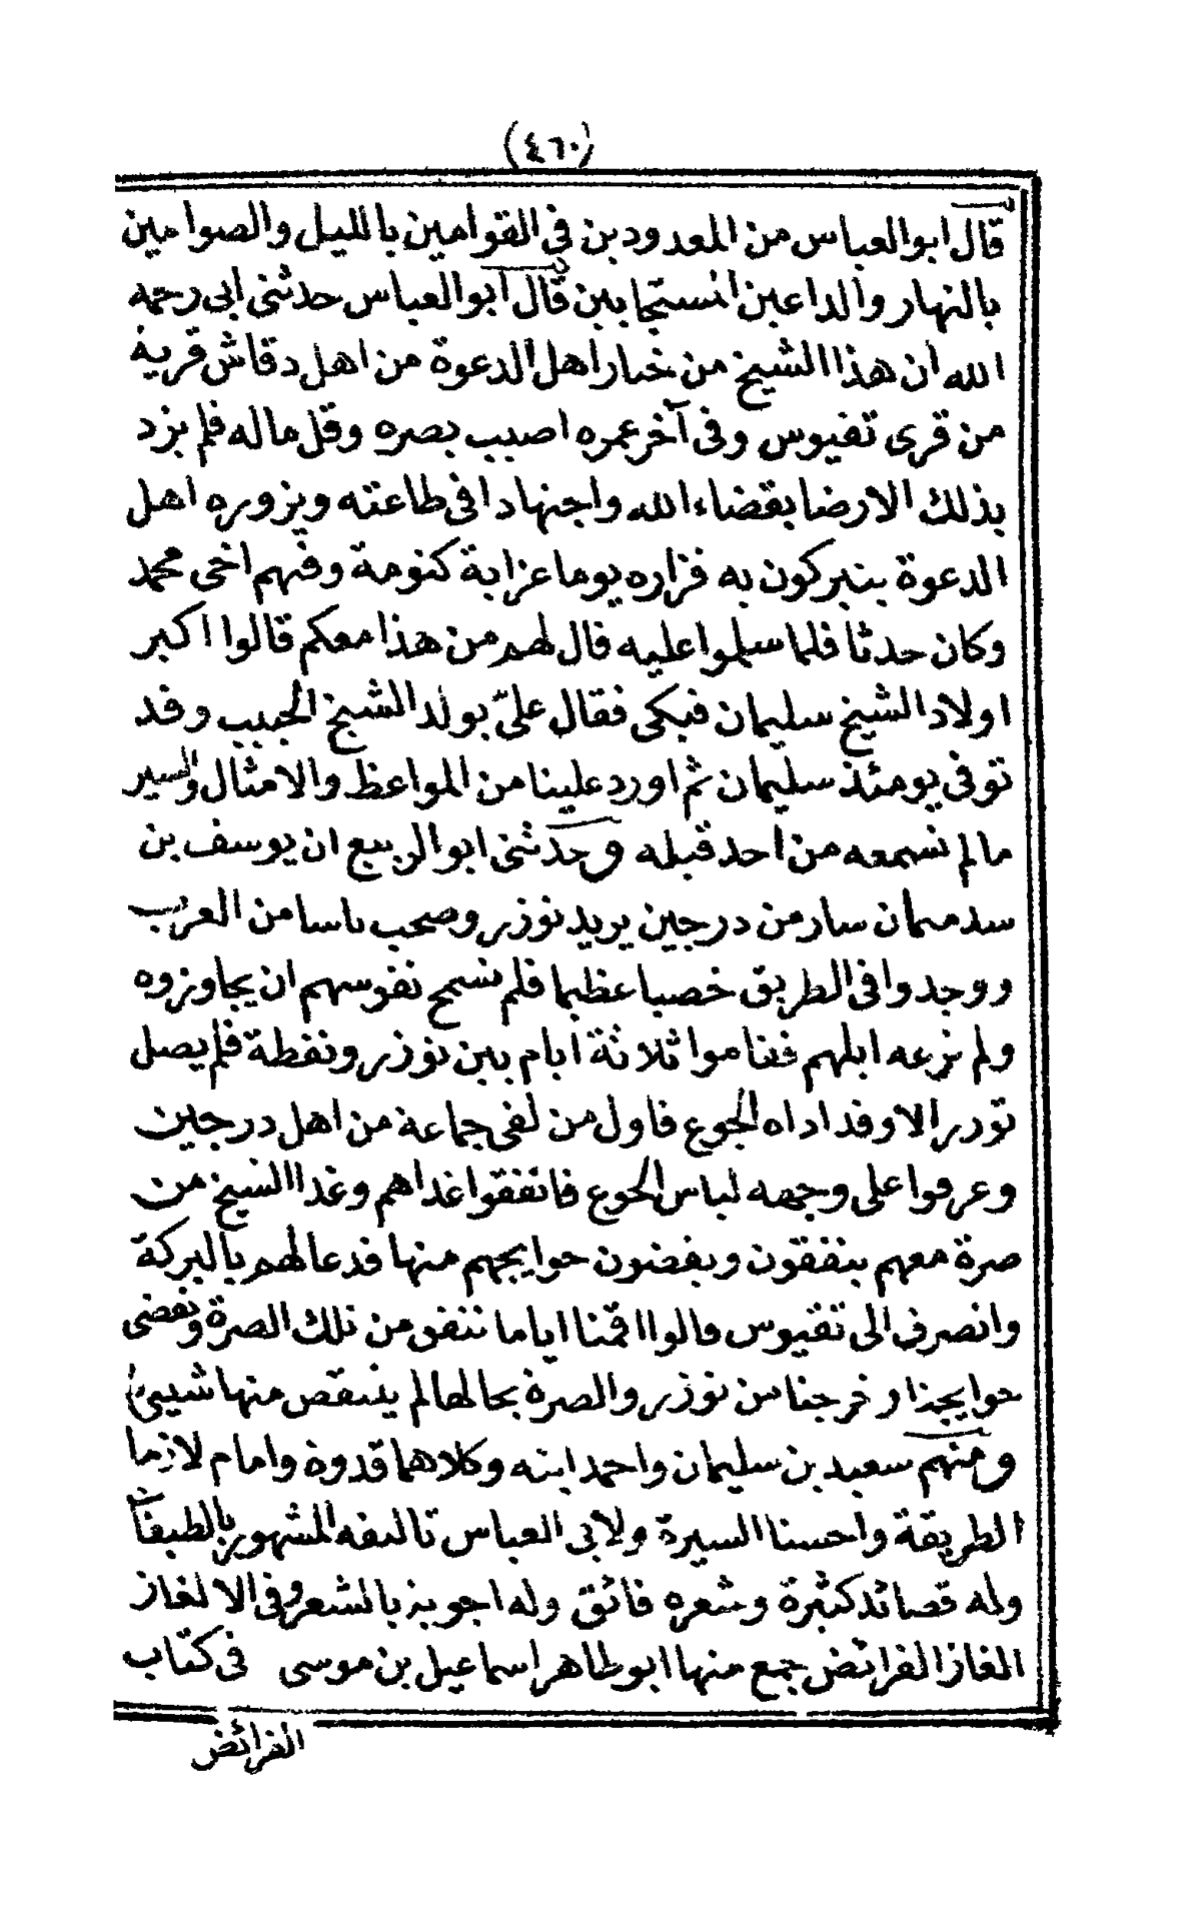 (٤٦٠)
قال ابو العباس من المعدودين في القوامين بالليل والصوامين
بالنهار والداعين المستجابين قال ابو العباس حدثني ابي رحمه
الله ان هذا الشيخ من خيار اهل الدعوة من اهل دقاش قرية
من قرى تقيوس وفي آخر عمره اصيب بصره وقل ماله فلم يزد
بذلك الا رضا بقضاء الله واجتهادا في طاعته ويزوره اهل
الدعوة يتبركون به فزاره يوما عزابة كنومة وفيهم اخي محمد
وكان حدثا فلما سلموا عليه قال لهم من هذا معكم قالوا اكبر
اولاد الشيخ سليمان فبكى فقال علىّ بولد الشيخ الحبيب وقد
توفى يومئذ سليمان ثم اورد علينا من المواعظ والامثال والسير
مالم نسمعه من احد قبله وحدثني ابو الربيع ان يوسف بن
سدميمان سار من درجين يريد توزر وصحب ناسا من العرب
ووجدوا في الطريق خصبا عظيما فلم تسمح نفوسهم ان يجاوزوه
ولم ترعه ابلهم فقاموا ثلاثة ايام بين توزر ونفطة فلم يصل
توزر الا وقد اداه الجوع فاول من لقى جماعة من اهل درجين
وعرفوا على وجهه لباس الجوع فانفقوا غداهم وغدا الشيخ من
صرة معهم ينفقون ويقضون حوايجهم منها فدعا لهم بالبركة
وانصرف الى تقيوس قالوا اقمنا اياما ننفق من تلك الصرة ونقضى
حوايجنا وخرجنا من توزر والصرة بحالها لم ينتقص منها شيئ
ومنهم سعيد بن سليمان واحمد ابنه وكلاهما قدوة وامام لازما
الطريقة واحسنا السيرة ولابي العباس تاليفه المشهور بالطبقات
وله قصائد كثيرة وشعره فائق وله اجوبة بالشعر وفي الالغاز
الغاز الفرائض جمع منها ابو طاهر اسماعيل بن موسى في كتاب
الفرائض